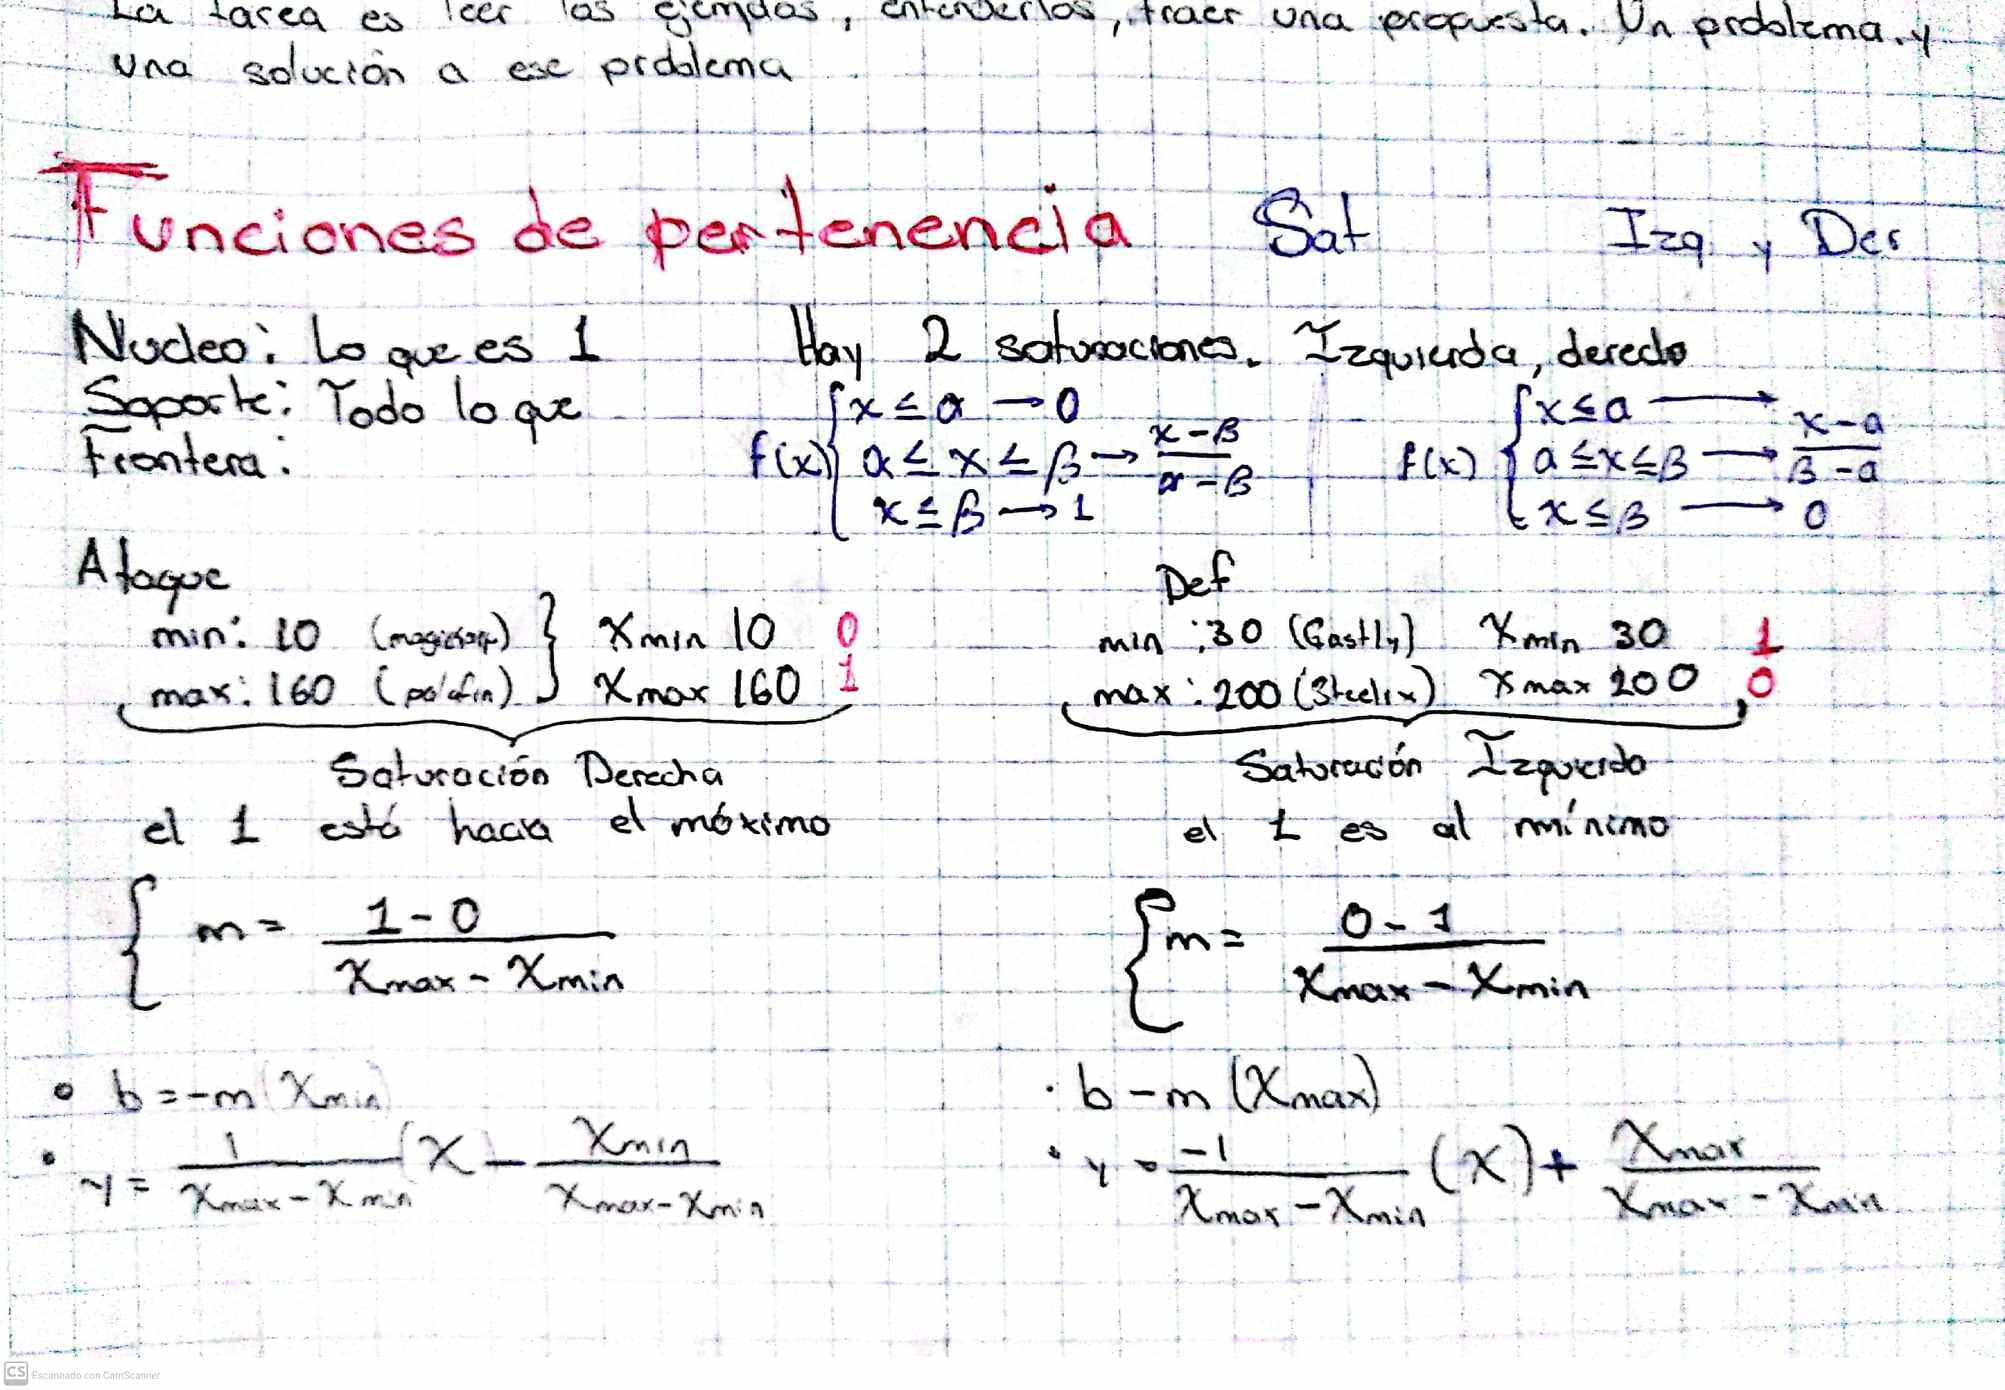 La tarea es leer los ejemplos, entenderlos, traer una propuesta. Un problema. y
una solución a ese problema
Funciones de pertenencia Sat Izq y Der
Nucleo: Lo que es 1 Hay 2 saturaciones. Izquierda, derecha
Soporte: Todo lo que
Frontera:
f(x) { x ≤ α → 0
α ≤ x ≤ β → (x-β)/(α-β)
x ≤ β → 1
f(x) { x ≤ a →
a ≤ x ≤ β → (x-a)/(β-a)
x ≤ β → 0
Ataque
min: 10 (magickarp) } Xmin 10 0
max: 160 (palafin) Xmax 160 1
Saturación Derecha
el 1 está hacia el máximo
{ m = (1-0)/(Xmax - Xmin)
• b = -m (Xmin)
• y = 1/(Xmax - Xmin) (X - Xmin/(Xmax - Xmin)
Def
min: 30 (Gastly) Xmin 30 1
max: 200 (Steelix) Xmax 200 0
Saturación Izquierda
el 1 es al mínimo
{ m = (0-1)/(Xmax - Xmin)
· b - m (Xmax)
• y = -1/(Xmax - Xmin) (X) + Xmax/(Xmax - Xmin)
CS Escaneado con CamScanner